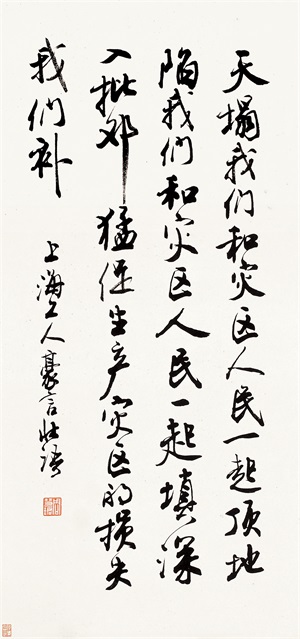 天塌我们和灾区人民一起顶地
陷我们和灾区人民一起填深
入批邓猛促生产灾区的损失
我们补
上海工人豪言壮语